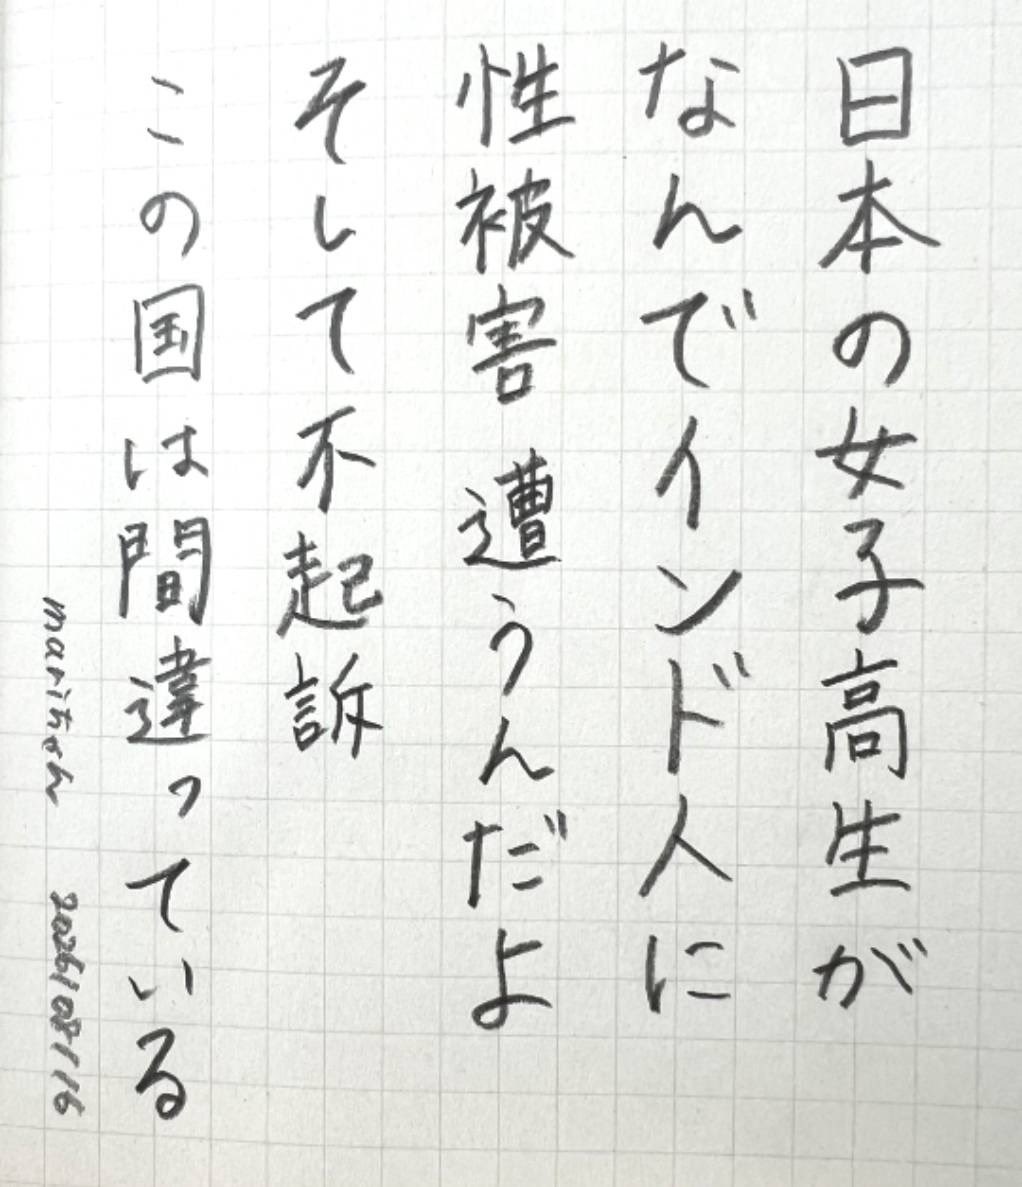 日本の女子高生が
なんでインド人に
性被害 遭うんだよ
そして不起訴
この国は間違っている
mariちゃん 2026/08/16